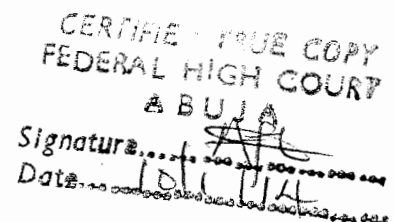 CERTIFIE TRUE COPY
FEDERAL HIGH COURT
ABUJA
Signature
Date 10/1/14